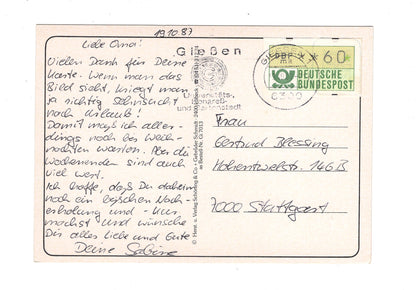 19.10.87
Gießen
Liebe Oma!
Vielen Dank für Deine
Karte. Wenn man das
Bild sieht, kriegt man
ja richtig Sehnsucht
nach Urlaub!
Damit muß ich aller-
dings noch bis Weih-
nachten warten. Aber die
Wochenenden sind auch
viel wert.
Ich hoffe, daß Du daheim
noch ein bißchen Nach-
erholung und -kur
machst und wünsche
Dir alles Liebe und Gute
Deine Sabine
Universitäts-,
Kongreß-
und Gartenstadt
GIESSEN
6300
DBP
60
DEUTSCHE
BUNDESPOST
Frau
Gertrud Blessing
Hohentwielstr. 146B
7000 Stuttgart